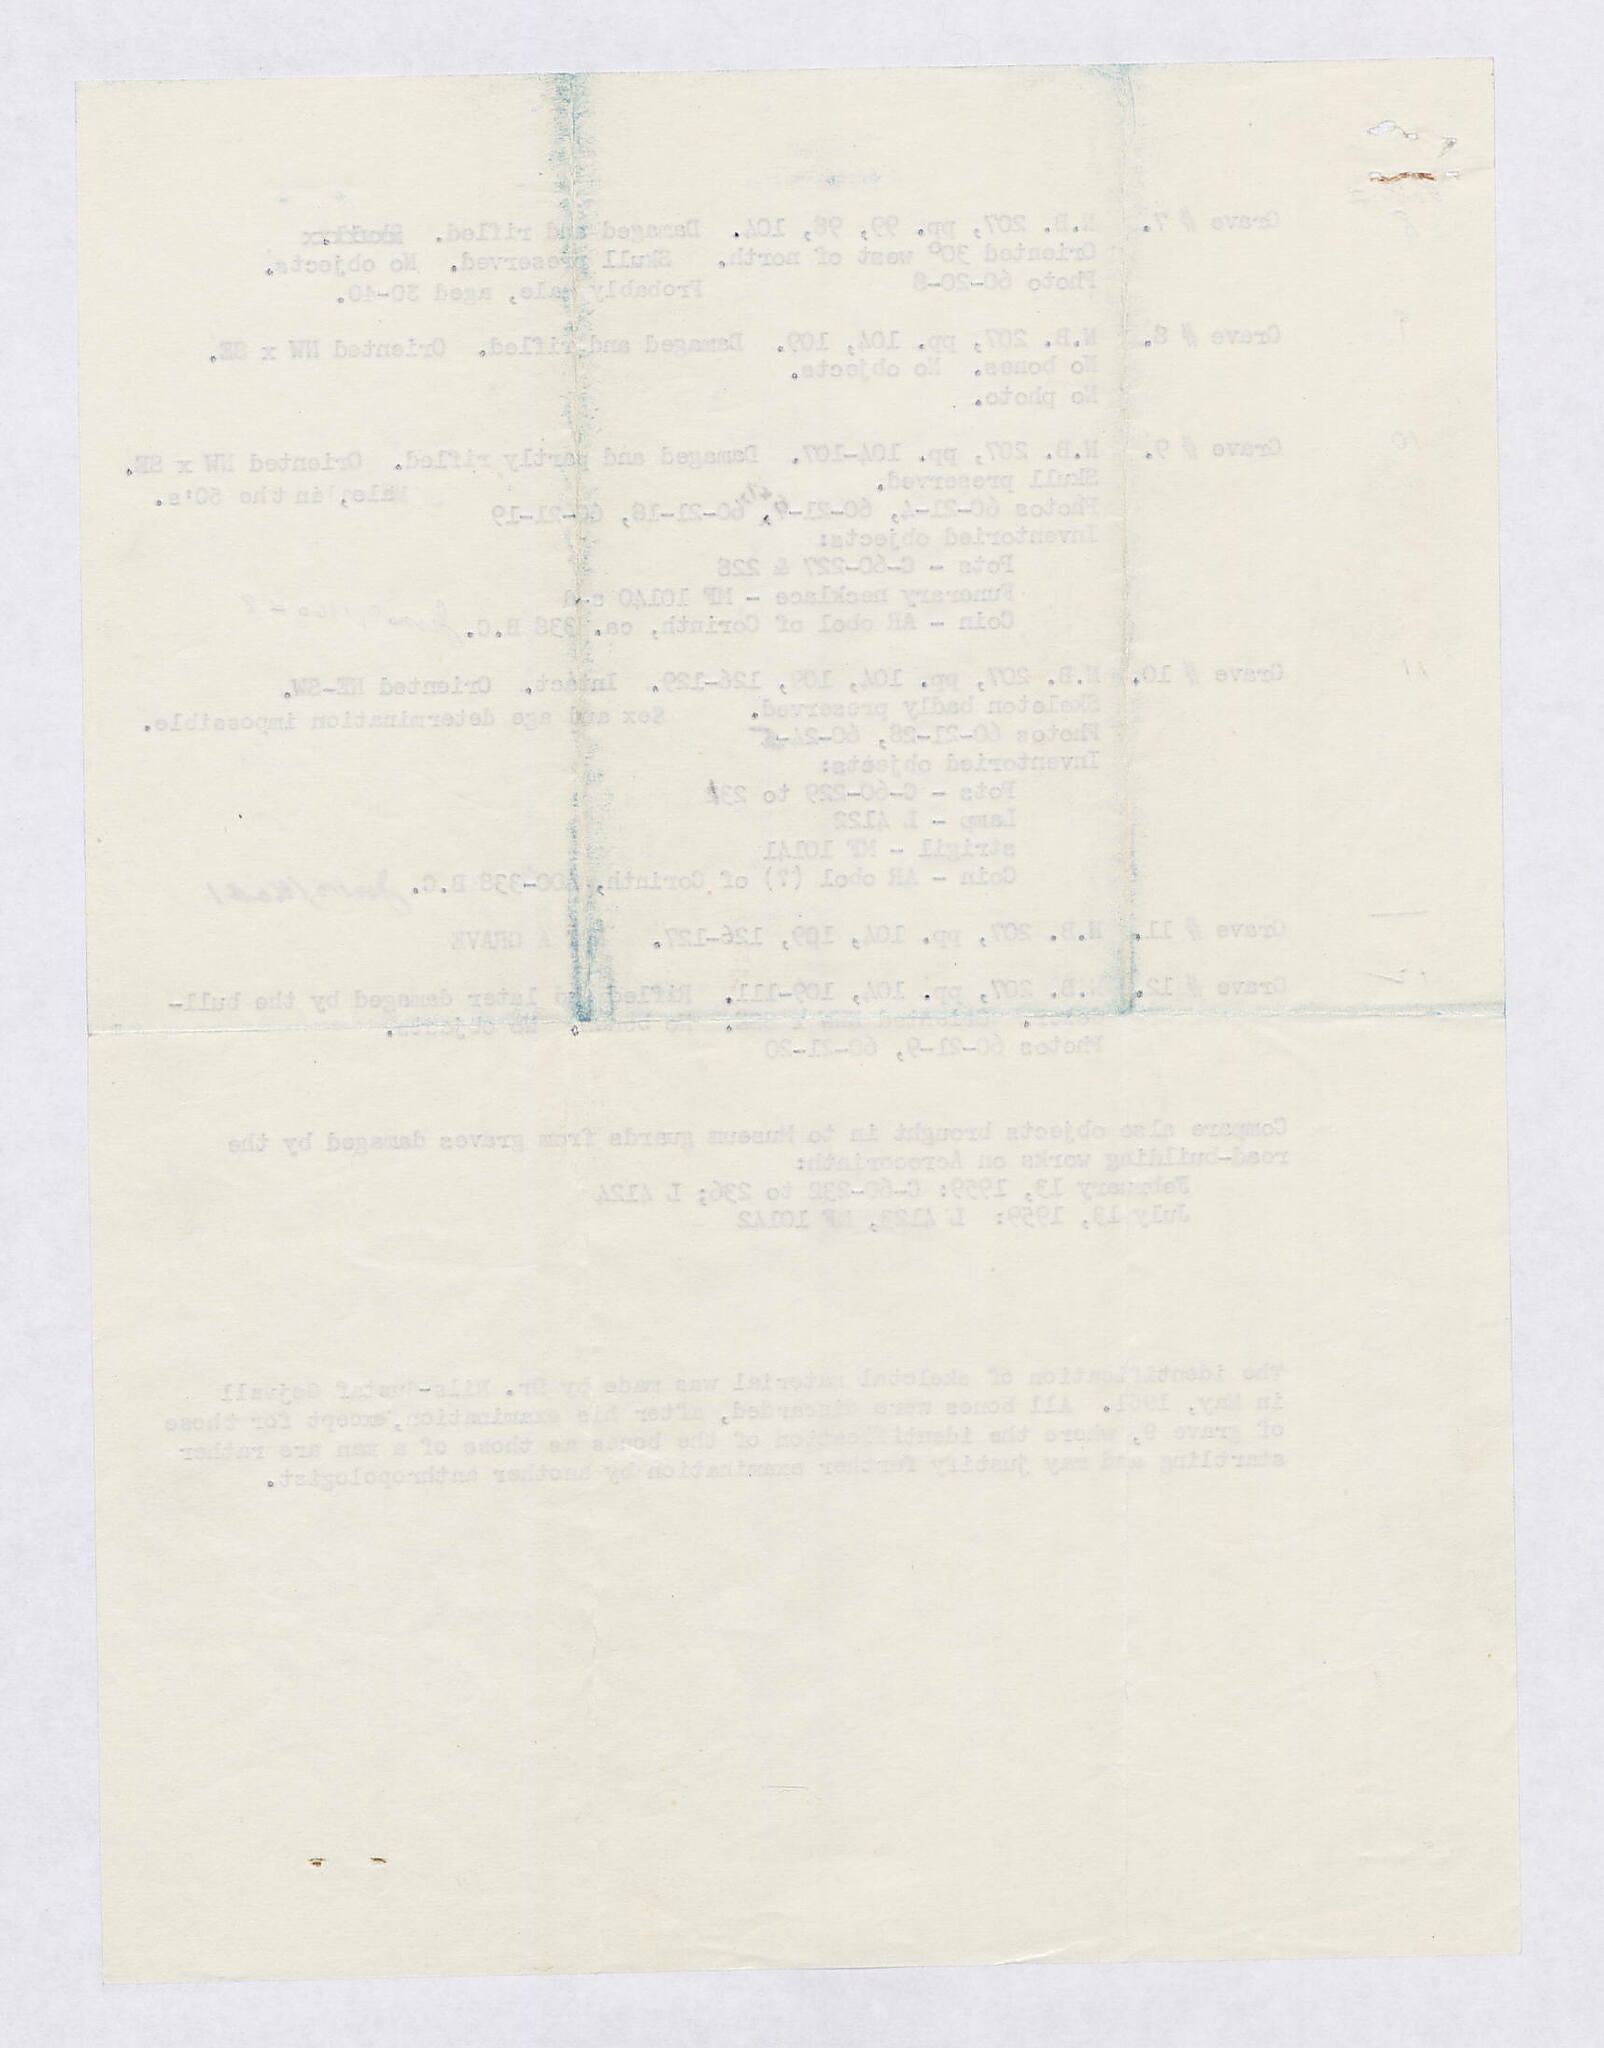 Grave # 7. N.B. 207, pp. 99, 98, 104. Damaged and rifled.
Oriented 30° west of north. Skull preserved. No objects.
Photo 60-20-8 Probably male, aged 30-40.
9
Grave # 8. N.B. 207, pp. 104, 109. Damaged and rifled. Oriented NW x SE.
No bones. No objects.
No photo.
10 Grave # 9. N.B. 207, pp. 104-107. Damaged and partly rifled. Oriented NW x SE.
Skull preserved. Male, in the 50's.
Photos 60-21-4, 60-21-6, 60-21-18, 60-21-19
Inventoried objects:
Pots - C-60-227 & 228
Funerary necklace - MF 10140
Coin - AR obol of Corinth, ca. 338 B.C.
11 Grave # 10. N.B. 207, pp. 104, 109, 126-129. Intact. Oriented NE-SW.
Skeleton badly preserved. Sex and age determination impossible.
Photos 60-21-28,
Inventoried objects:
Pots - C-60-229 to
Lamp - L 4122
strigil - MF 10141
Coin - AR obol (?) of Corinth, 400-338 B.C.
— Grave # 11. N.B. 207, pp. 104, 109, 126-127. A GRAVE
12 Grave # 12. N.B. 207, pp. 104, 109-111. Rifled and later damaged by the bull-
Oriented No bones. No objects.
Photos 60-21-9, 60-21-20
Compare also objects brought in to Museum guards from graves damaged by the
road-building works on Acrocorinth:
February 13, 1959: C-60-232 to 236; L 4124
July 13, 1959: L 4123, MF 10142
The identification of skeletal material was made by Dr. Nils-Gustaf Gejvall
in May, 1961. All bones were discarded, after his examination, except for those
of grave 9, where the identification of the bones as those of a man are rather
startling and may justify further examination by another anthropologist.